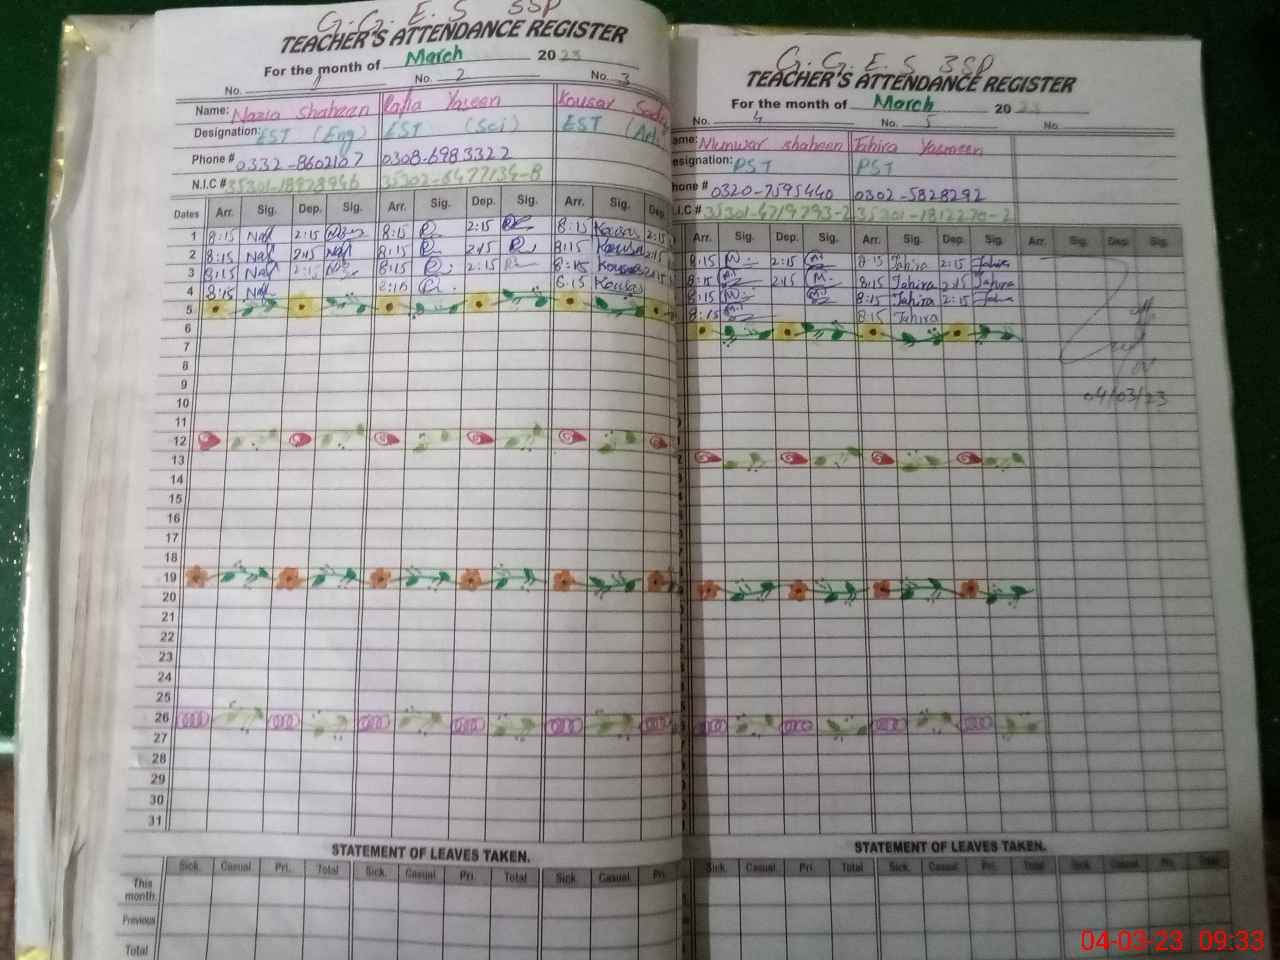 G.G.E.S 3SP
TEACHER'S ATTENDANCE REGISTER
For the month of March 2023
No. 1 No. 2 No. 3
Name: Nazia shaheen Rafia Yaseen Kousar
Designation: EST (Eng) EST (Sci) EST
Phone # 0332-8602107 0308-6983322
N.I.C #
Dates Arr. Sig. Dep. Sig. Arr. Sig. Dep. Sig. Arr. Sig. Dep.
1 8:15 Naz 2:15 8:15 R 2:15 8:15 Kousar 2:15
2 8:15 Naz 2:15 Naz 8:15 R 2:15 R 8:15 Kousar 2:15
3 8:15 Naz 2:15 8:15 R 2:15 8:15 Kousar 2:15
4 8:15 Naz 8:15 R 8:15 Kousar
5
6
7
8
9
10
11
12
13
14
15
16
17
18
19
20
21
22
23
24
25
26
27
28
29
30
31
STATEMENT OF LEAVES TAKEN.
Sick. Casual Pri. Total Sick. Casual Pri. Total Sick. Casual Pri.
This month.
Previous
Total
G.G.E.S 3SP
TEACHER'S ATTENDANCE REGISTER
For the month of March 2023
No. 4 No. 5 No.
ame: Munwar shaheen Tahira Yasmeen
esignation: PST PST
hone # 0320-7595440 0302-5828292
.I.C # 35301-4719793-2 35301-1812270-2
Arr. Sig. Dep. Sig. Arr. Sig. Dep. Sig. Arr. Sig. Dep. Sig.
8:15 M 2:15 M 8:15 Tahira 2:15 Tahira
8:15 M 2:15 M 8:15 Tahira 2:15 Tahira
8:15 M M 8:15 Tahira 2:15 Tahira
8:15 M 8:15 Tahira
04/03/23
STATEMENT OF LEAVES TAKEN.
Sick. Casual Pri. Total Sick. Casual Pri. Total Sick. Casual Pri. Total
04-03-23 09:33